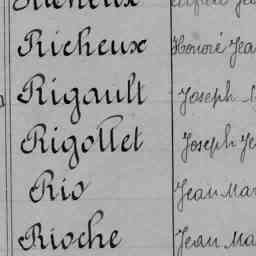 Richeux Honoré Jea
Rigault Joseph M
Rigollet Joseph Je
Rio Jean Mar
Rioche Jean Ma